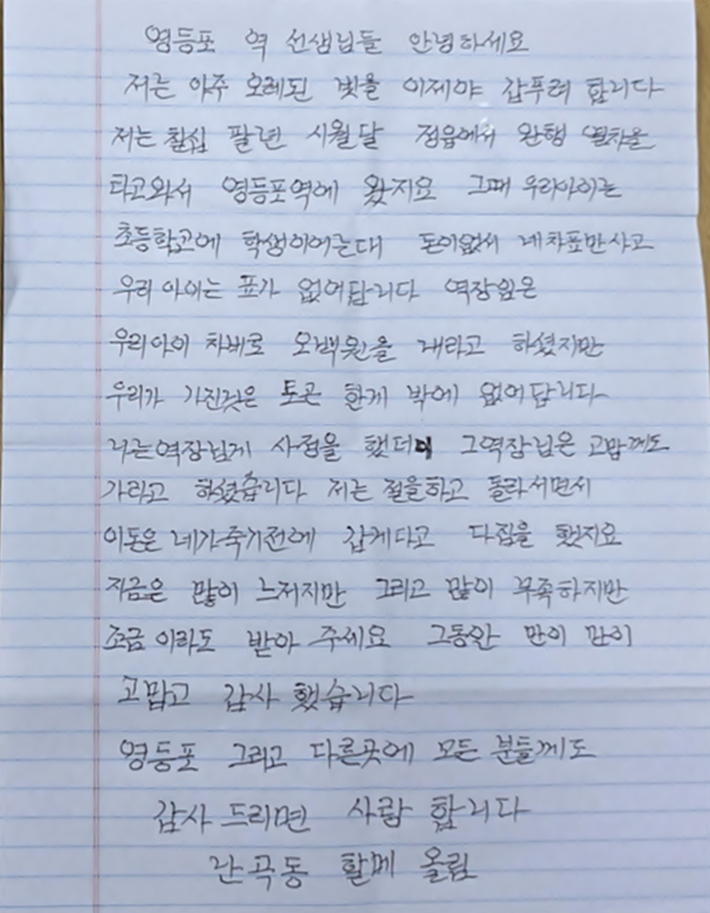 영등포 역 선생님들 안녕하세요
저는 아주 오레된 빛을 이제야 갑푸려 합니다
저는 칠십 팔년 시월달 정읍에서 완행 열차을
타고와서 영등포역에 왔지요 그때 우리아이는
초등학고에 학생이어는대 돈이없서 네차표만사고
우리 아이는 표가 없어답니다 역장임은
우리아이 차비로 오백원을 내라고 하셨지만
우리가 가진것은 토큰 한게 밖에 없어답니다
나는역장님게 사정을 했더니 그역장님은 고맙께도
가라고 하셨습니다 저는 절을하고 돌라서면서
이돈은 네가죽기전에 갑게다고 다짐을 했지요
지금은 많이 느저지만 그리고 많이 부족하지만
조금 이라도 받아 주세요 그동안 만이 만이
고맙고 감사 했습니다
영등포 그리고 다른곳에 모든 분들께도
감사 드리면 사랑 합니다
난곡동 할메 올림